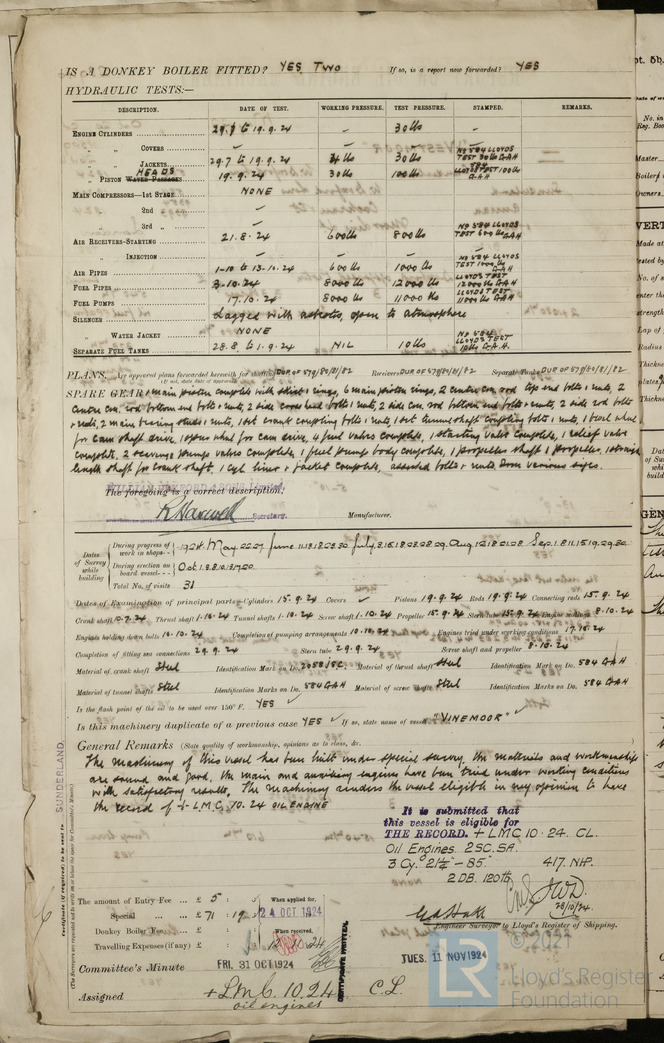 IS A DONKEY BOILER FITTED? YES TWO If so, is a report now forwarded? YES
HYDRAULIC TESTS:—
DESCRIPTION. DATE OF TEST. WORKING PRESSURE. TEST PRESSURE. STAMPED. REMARKS.
ENGINE CYLINDERS 29.7 to 19.9.24 – 30 lbs
" " COVERS – – –
" " JACKETS 29.7 to 19.9.24 4 lbs 30 lbs No 584 LLOYDS TEST 30 lbs G.A.H
" PISTON WATER PASSAGES HEADS 19.9.24 30 lbs 100 lbs 584 LLOYDS TEST 100 lbs G.A.H
MAIN COMPRESSORS—1st STAGE NONE
" " 2nd " –
" " 3rd " –
AIR RECEIVERS-STARTING 21.8.24 600 lbs 800 lbs No 584 LLOYDS TEST G.A.H
" " INJECTION – – – –
AIR PIPES 1-10 to 13.10.24 600 lbs 1000 lbs No 584 LLOYDS TEST 1000 lbs G.A.H
FUEL PIPES 3-10.24 8000 lbs 12000 lbs LLOYDS TEST 12000 lbs G.A.H
FUEL PUMPS 17.10.24 8000 lbs 11000 lbs LLOYDS TEST 11000 lbs G.A.H
SILENCER Lagged with asbestos, open to atmosphere
" WATER JACKET NONE
SEPARATE FUEL TANKS 28.8 to 1.9.24 NIL 10 lbs No 584 LLOYDS TEST 10 lbs G.A.H.
PLANS. Are approved plans forwarded herewith for shafting DUP OF 579/80/81/82 Receivers DUP OF 579/80/81/82 Separate Tanks DUP OF 579/80/81/82
SPARE GEAR 1 main piston complete with skirt & rings, 6 main piston rings, 2 center con. rod top end bolts & nuts, 2
center con. rod bottom end bolts & nuts, 2 side cross head bolts & nuts, 2 side con. rod bottom end bolts & nuts, 2 side rod bolts
& nuts, 2 main bearing studs & nuts, 1 set crank coupling bolts & nuts, 1 set tunnel shaft coupling bolts & nuts, 1 bevel wheel
for cam shaft drive, 1 spur wheel for cam drive, 4 fuel valves complete, 1 starting valve complete, 1 relief valve
complete, 2 scavenge pump valves complete, 1 fuel pump body complete, 1 propeller shaft 1 propeller, 1 straight
length shaft for crank shaft, 1 cyl liner & jacket complete, assorted bolts & nuts, iron various sizes.
WILLIAM DOXFORD & SONS Limited.
The foregoing is a correct description,
Secretary. Manufacturer.
Dates of Survey while building
During progress of work in shops - - 1924. May. 22.27. June July. Aug. Sep. 1.8.11.15.19.29.30
During erection on board vessel - - - Oct. 1.3.8.10.13.17.20
Total No. of visits 31
Dates of Examination of principal parts—Cylinders 15.9.24 Covers ✓ Pistons 19.9.24 Rods 19.9.24 Connecting rods 15.9.24
Crank shaft Thrust shaft 1.10.24 Tunnel shafts 1.10.24 Screw shaft 1.10.24 Propeller 15.9.24 Stern tube 15.9.24 Engine seatings 8.10.24
Engines holding down bolts 10.10.24 Completion of pumping arrangements 10.10.24 Engines tried under working conditions 17.10.24
Completion of fitting sea connections 29.9.24 Stern tube 29.9.24 Screw shaft and propeller 8.10.24
Material of crank shaft Steel Identification Mark on Do. Material of thrust shaft Steel Identification Mark on Do. 584 GAH
Material of tunnel shafts Steel Identification Marks on Do. 584 GAH Material of screw shafts Steel Identification Marks on Do. 584 GAH
Is the flash point of the oil to be used over 150° F. YES ✓
Is this machinery duplicate of a previous case YES ✓ If so, state name of vessel "VINEMOOR" ✓
General Remarks (State quality of workmanship, opinions as to class, &c.
The machinery of this vessel has been built under special survey, the materials and workmanship
are sound and good, the main and auxiliary engines have been tried under working conditions
with satisfactory results, The machinery renders the vessel eligible in my opinion to have
the record of + L.M.C. 10.24 OIL ENGINE
It is submitted that
this vessel is eligible for
THE RECORD. + LMC 10.24. CL.
Oil Engines 2SC.SA.
3 Cy. 21¼ – 85 417. NHP.
2 DB. 120 lb.
28/10/24.
The amount of Entry Fee ... £ 5 : When applied for,
Special ... £ 71 : 19 : 24 OCT 1924
Donkey Boiler Fee ... £ : When received,
Travelling Expenses (if any) £ :
Engineer Surveyor to Lloyd's Register of Shipping.
Committee's Minute FRI. 31 OCT 1924 TUES. 11 NOV 1924
Assigned + L.M.C. 10.24 C.L.
oil engines
CERTIFICATE WRITTEN
SUNDERLAND
Certificate (if required) to be sent to
© 2021
LR
Lloyd's Register
Foundation